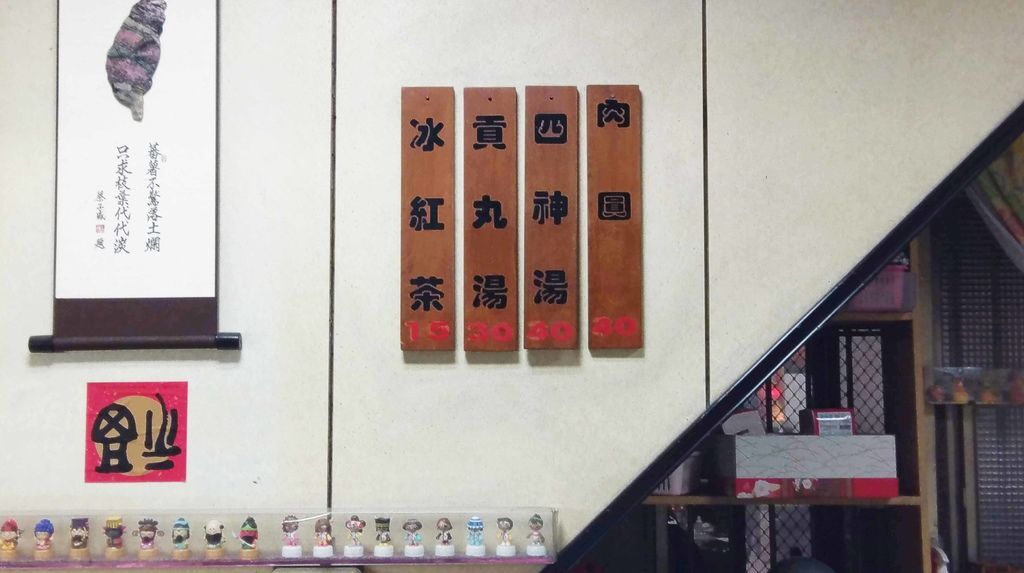 蕃薯不驚落土爛
只求枝葉代代湠
肉圓 40
四神湯 30
貢丸湯 30
冰紅茶 15
福